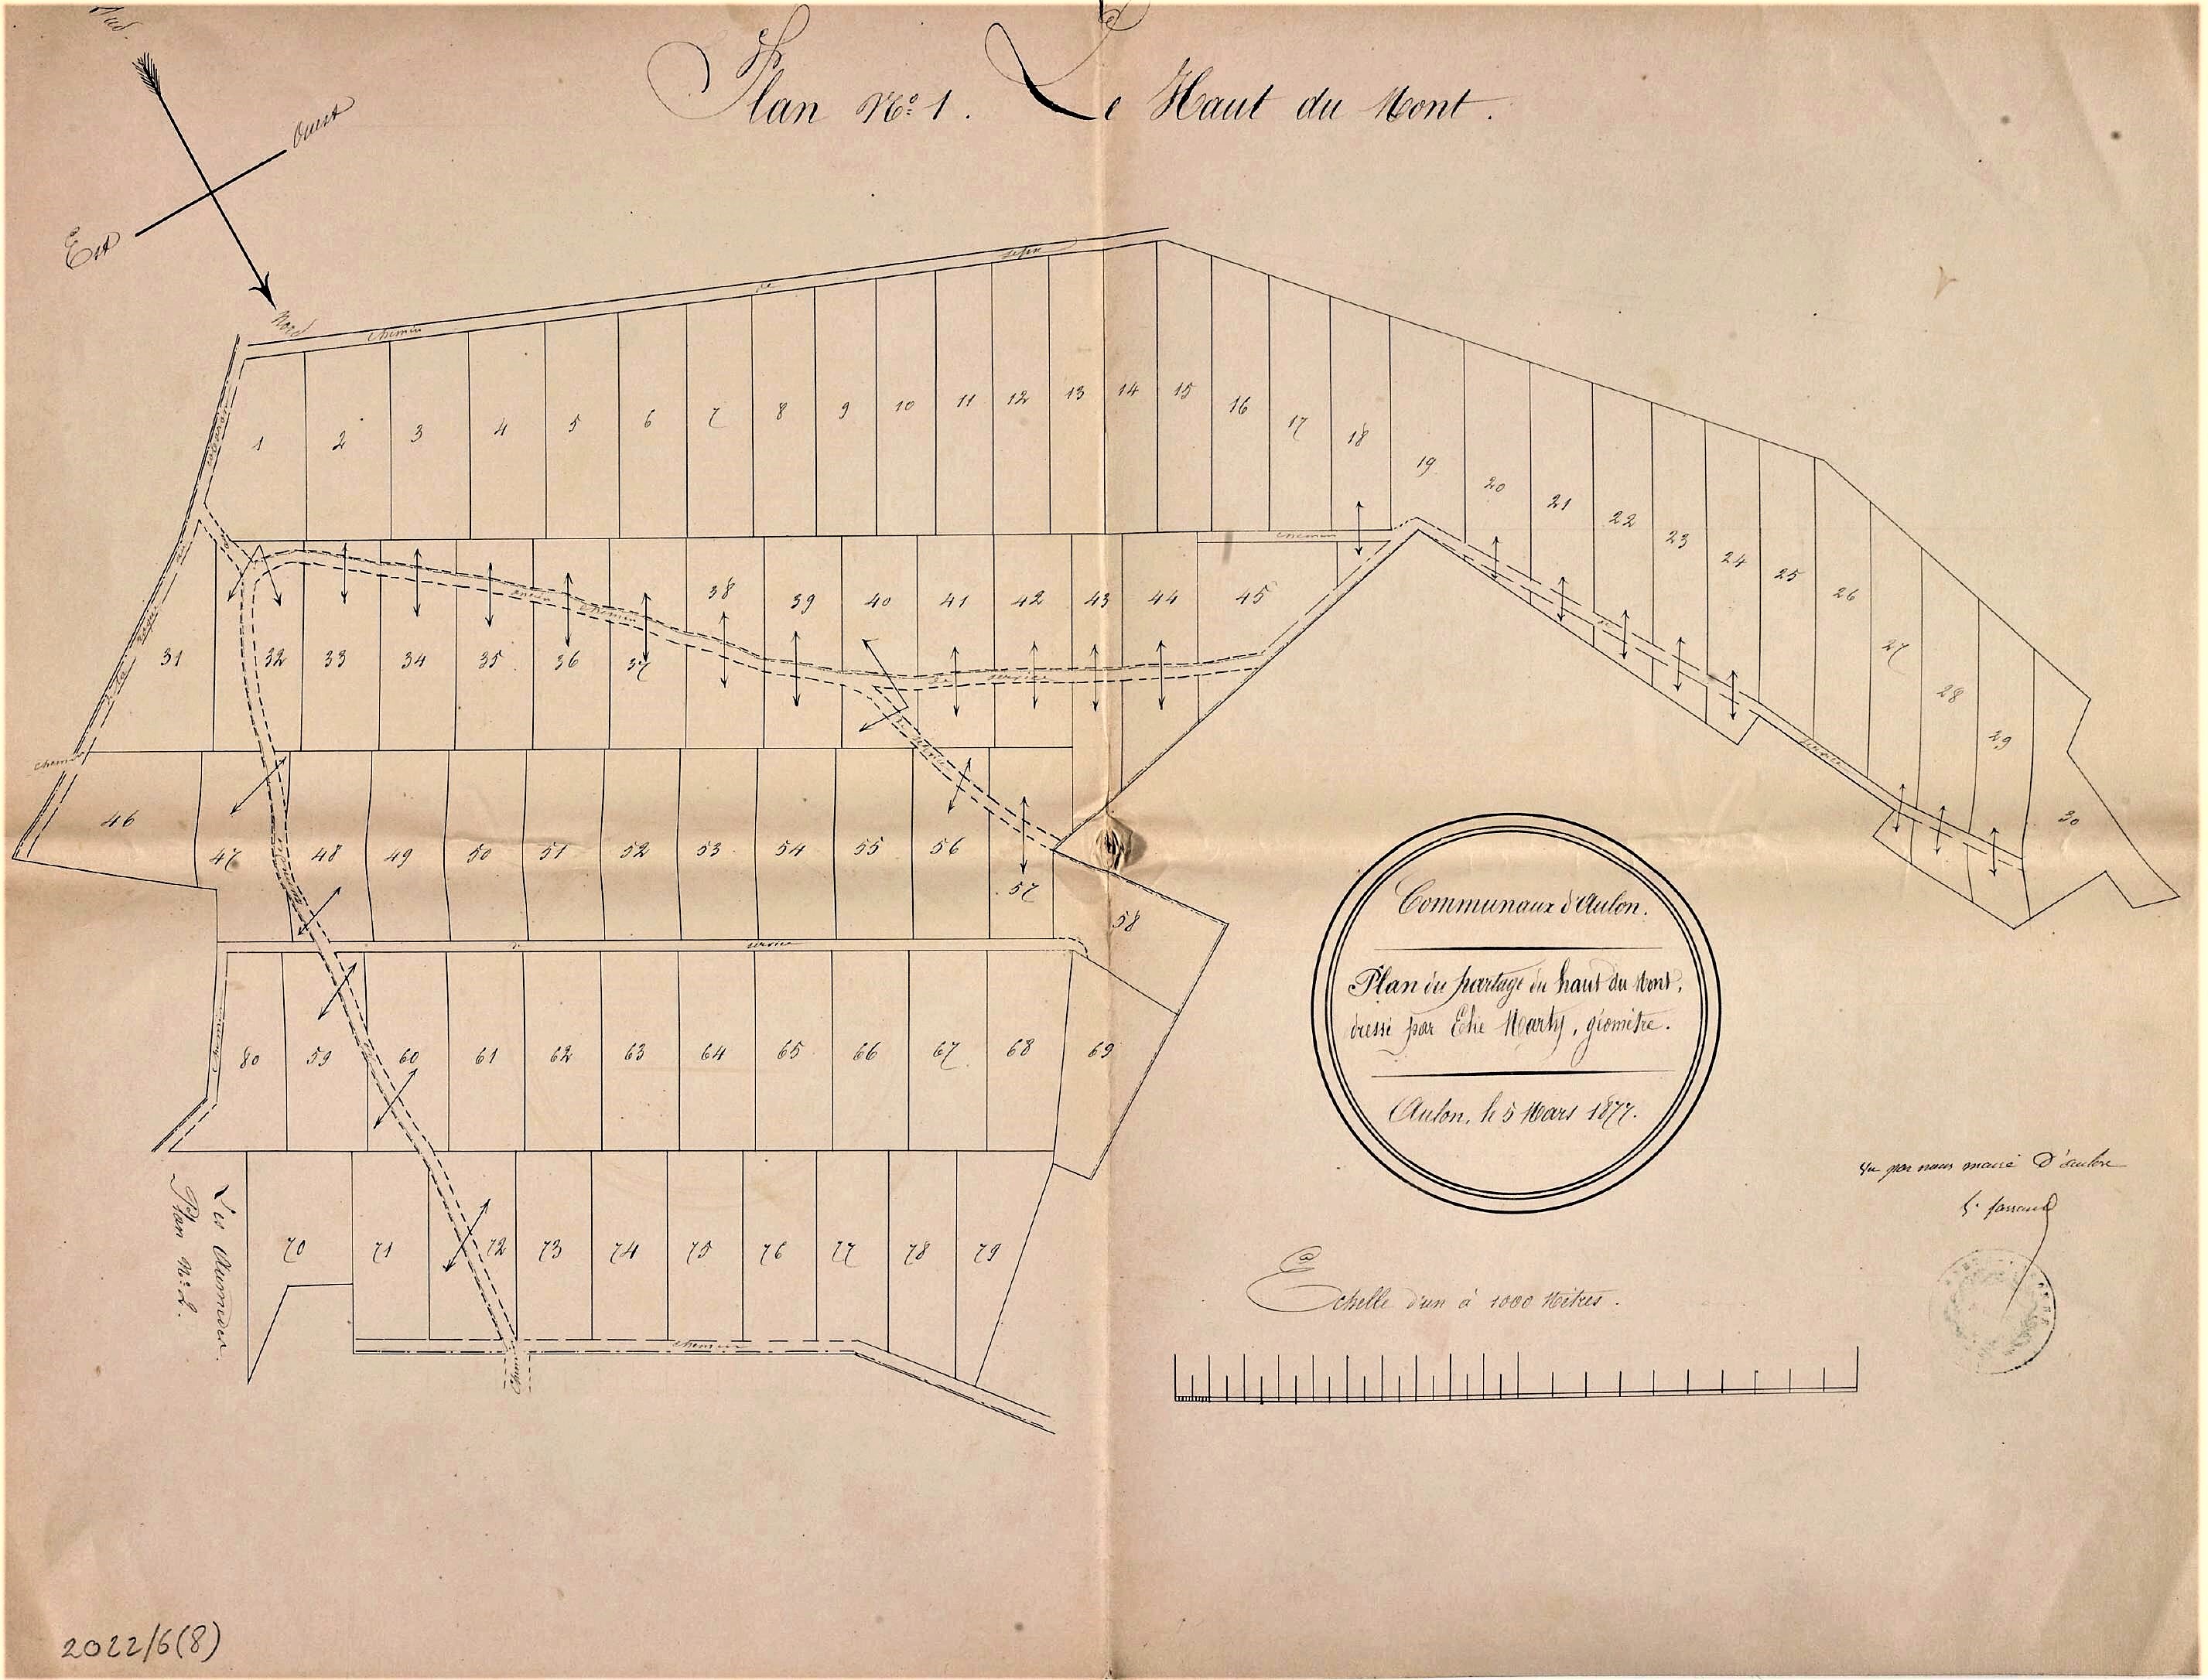 Sud.
Plan N.º 1. Le Haut du Mont.
Ouest
Est
Nord
Chemin de Lespin
1 2 3 4 5 6 7 8 9 10 11 12 13 14 15 16 17 18 19 20 21 22 23 24 25 26 27 28 29 30
Chemin
ancien Chemin de service
38 39 40 41 42 43 44 45
31 32 33 34 35 36 37
de service
de service
Chemin
46 47 48 49 50 51 52 53 54 55 56 57 58
de service
Chemin
80 59 60 61 62 63 64 65 66 67 68 69
70 71 72 73 74 75 76 77 78 79
Chemin
Chemin
Plan N.º 2.
Communaux d'Aulon.
Plan du partage du haut du Mont,
dressé par Elie Marty, géomètre.
Aulon, le 5 Mars 1877.
Vu par nous maire D'aulon
Echelle d'un à 1000 Mètres.
2022/6(8)